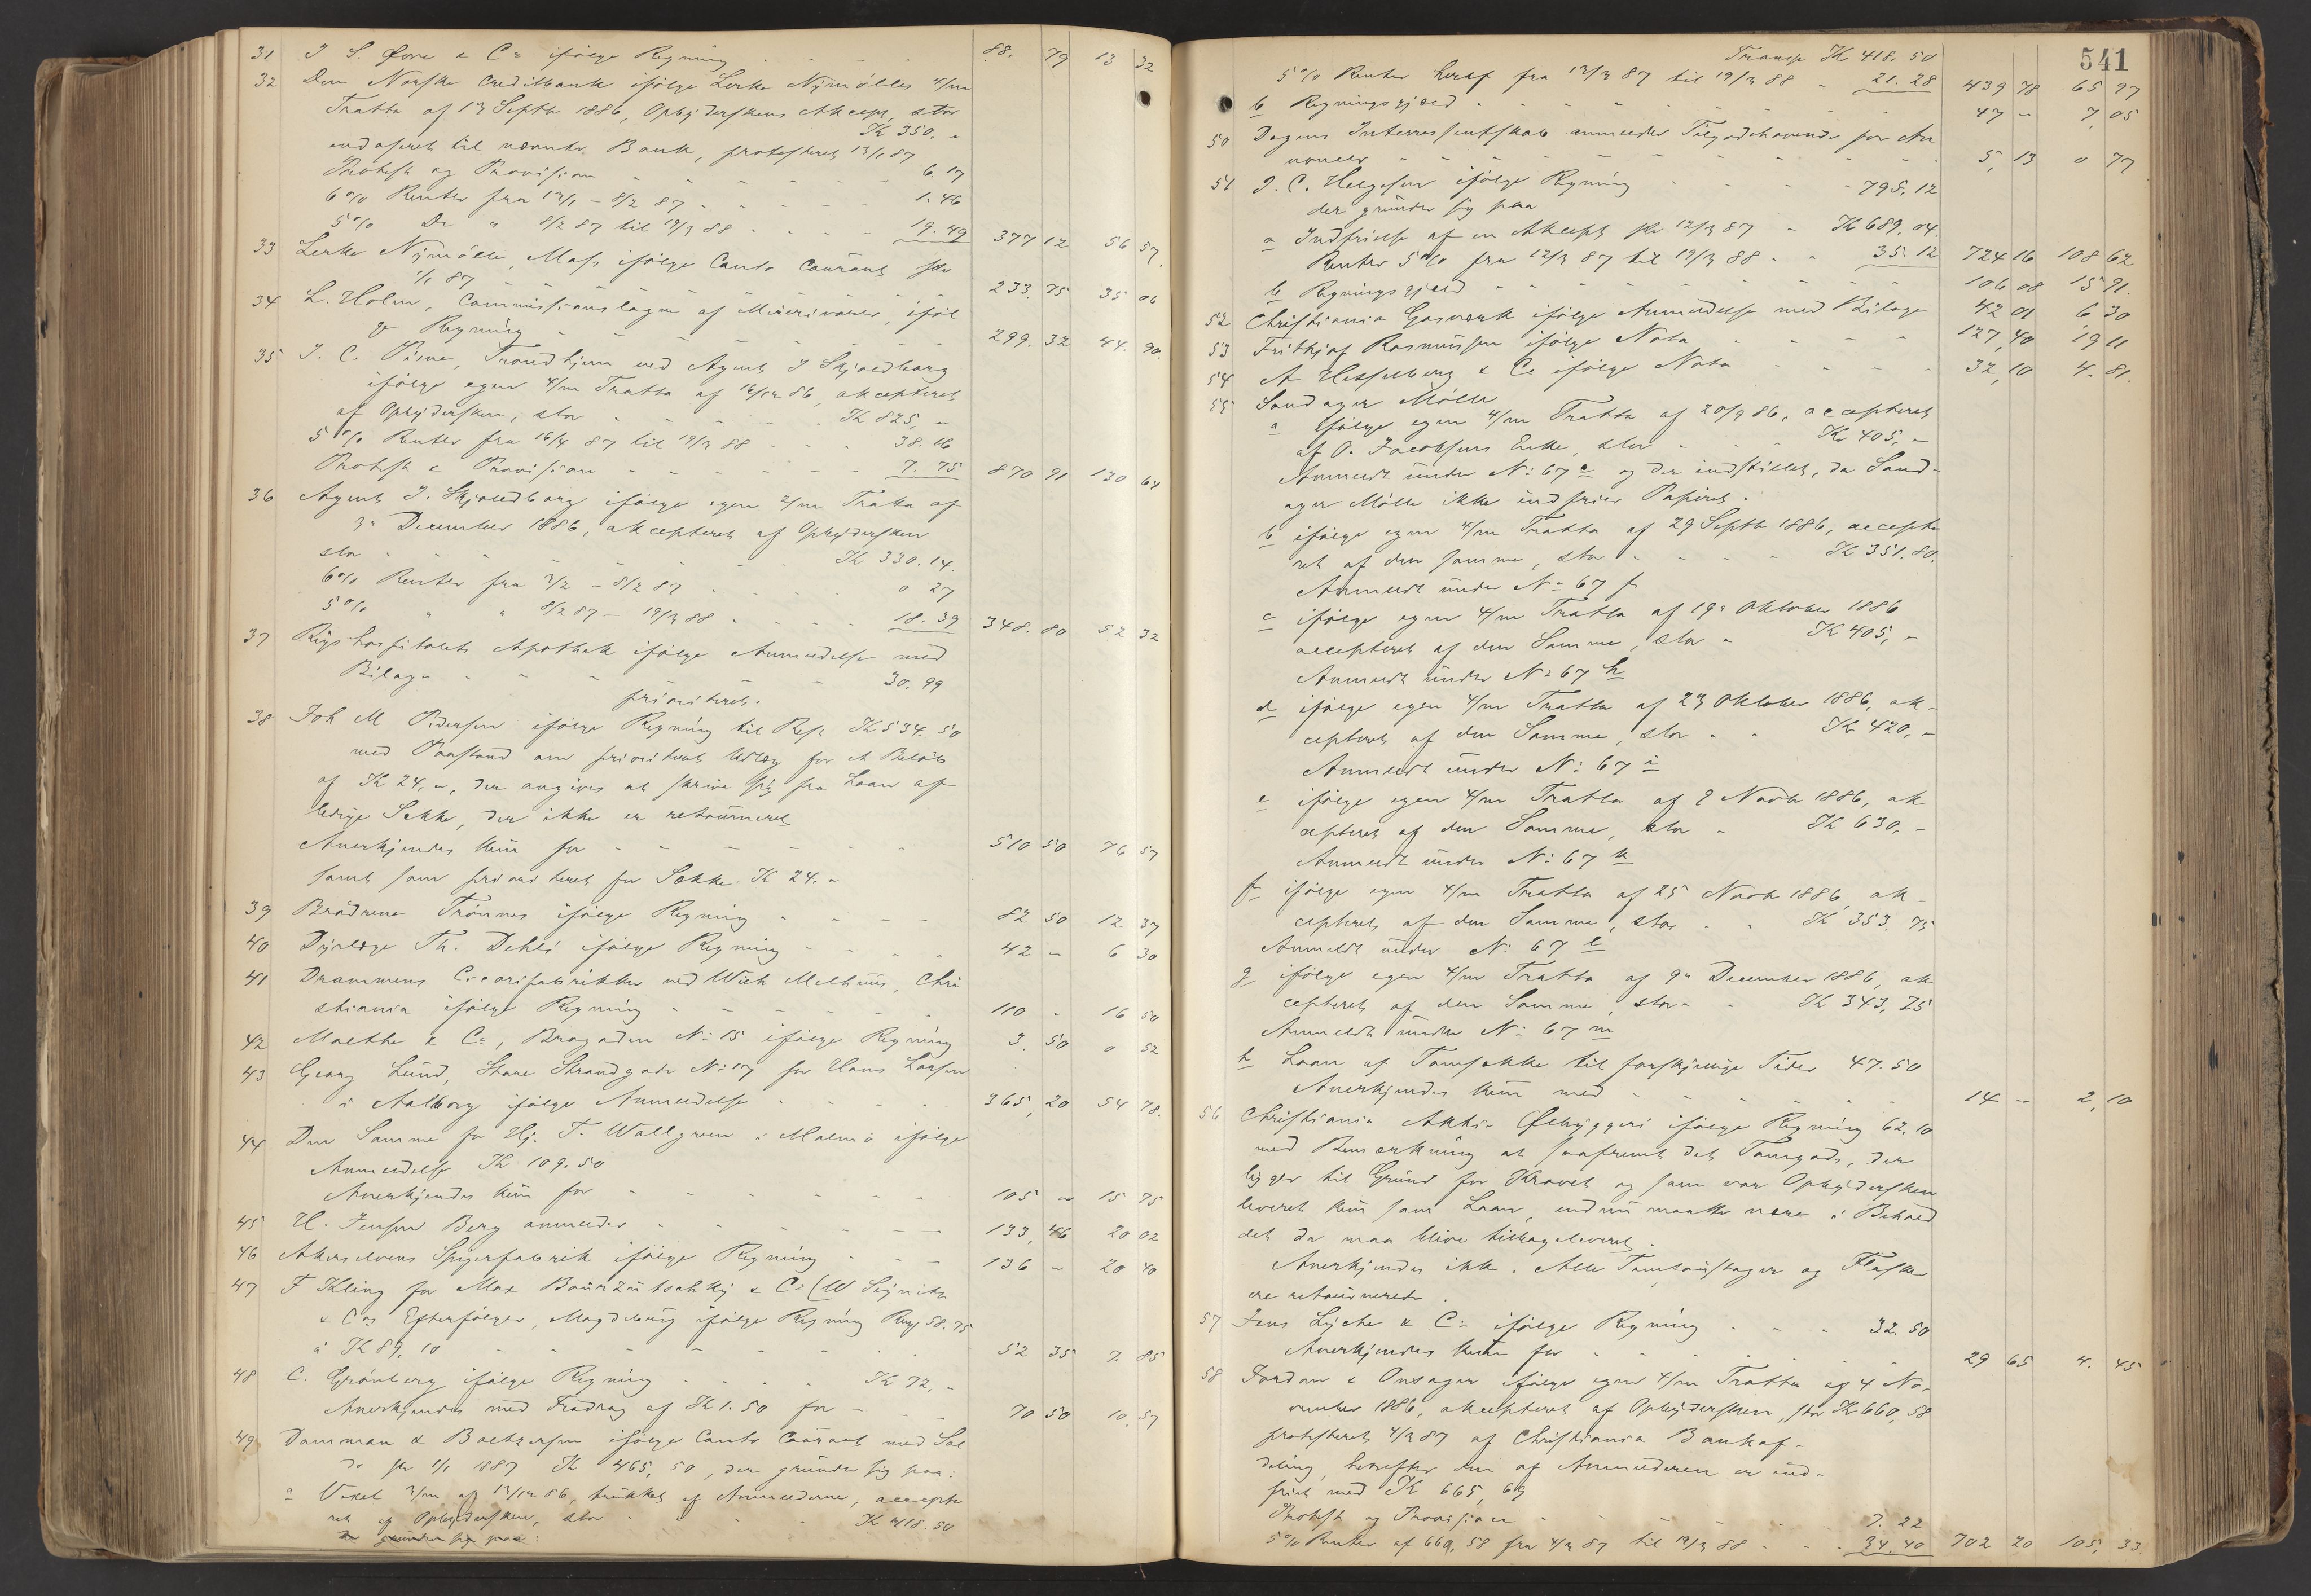 31 I. S. Øvre & Co ifølge Regning 88. 79 13 32
32 Den Norske Creditbank ifølge Lerke Nymølles 4/m
Tratta af 13 Septbr 1886, Opbyderskens Akcept, stor
Kr 350. "
endosseret til nævnte Bank, protesteret 13/1 87
Protest og Provision 6. 17
6% Renter fra 13/1 - 8/2 87 1. 46
5% Do " 8/2 87 til 19/3 88 19. 49 377 12 56 57.
33 Lerke Nymølle, Moss ifølge Conto Courant pr
1/1 87 233. 75 35 06
34 L. Holm, Commissionslager af Meierivarer, iføl
ge Regning 299. 32 44. 90.
35 I. C. Piene, Trondhjem ved Agent I Skjoldborg
ifølge egen 4/m Tratta af 16/12 86, akcepteret
af Opbydersken, stor Kr 825, "
5% Renter fra 16/4 87 til 19/3 88 38. 16
Protest & Provision 7. 75 870 91 130 64
36 Agent I. Skjoldborg ifølge egen 2/m Tratta af
3. December 1886, akcepteret af Opbydersken
stor Kr 330. 14.
6% Renter fra 3/2 - 8/2 87 0 27
5% " " 8/2 87 - 19/3 88 18. 39 348. 80 52 32
37 Rigshospitalets Apothek ifølge Anmeldelse med
Bilag 30. 99
prioriteret.
38 Joh M Pedersen ifølge Regning til Rest Kr 534. 50
med Paastand om prioriteret Udlæg for et Beløb
af Kr 24, ", der angives at skrive sig fra Laan af
ledige Sekke, der ikke er retourneret
Anerkjendes kun for 510 50 76 57
samt som prioriteret for Sekke. Kr 24. "
39 Brødrene Trønnes ifølge Regning 82 50 12 37
40 Dyrlæge Th. Dehli ifølge Regning 42 " 6 30
41 Drammens Cicorifabrikker ved Wilh Melhuus, Chri
stiania ifølge Regning 110 " 16 50
42 Malthe & Co, Brogaden No 15 ifølge Regning 3. 50 0 52
43 Georg Lund, Store Strandgade No 17 for Hans Larsen
i Aalborg ifølge Anmeldelse 365, 20 54 78.
44 Den Samme for Hj. T. Wallgreen i Malmø ifølge
Anmeldelse Kr 109. 50
Anerkjendes kun for 105 " 15 75
45 H. Jensen Berg anmelder 133, 46 20 02
46 Akerselvens Spigerfabrik ifølge Regning 136 " 20 40
47 F Kling for Max & Co (W
& Cos Efterfølger, Magdeburg ifølge Regning Rmk 58. 75
à Kr 89, 10 52 35 7. 85
48 C. Grønberg ifølge Regning Kr 72, "
Anerkjendes med Fradrag af Kr 1. 50 for 70 50 10. 57
49 Damman & Baltzersen ifølge Conto Courant med Sal
do pr 1/1 1887 Kr 465, 50, der grunder sig paa:
a Vexel 3/m af 13/12 86, trukket af Anmelderne, accepte
ret af Opbydersken, stor Kr 418. 50
der grunder sig paa:
541
Transp Kr 418. 50
5% Renter heraf fra 13/3 87 til 19/3 88 21. 28 439 78 65 97
b Regningsgjæld 47 " 7, 05
50 Dagens Interessentskab anmelder Tilgodehavende for An
noncer 5, 13 0 77
51 I. C. Helgesen ifølge Regning 795. 12
der grunder sig paa
a Indfrielse af en Akcept pr 12/3 87 Kr 689. 04.
Renter 5% fra 12/3 87 til 19/3 88 35. 12 724 16 108 62
b Regningsgjæld 106 08 15 91.
52 Christiania Gasværk ifølge Anmeldelse med Bilage 42 01 6 30
53 Frithjof Rasmussen ifølge Nota 127, 40 19 11
54 A Hesselberg & Co ifølge Nota 32, 10 4. 81.
55 Sandager Mølle
a ifølge egen 4/m Tratta af 20/9 86, accepteret
af O. Jacobsens Enke, stor Kr 405, "
Anmeldt under No 67 e og der indstillet, da Sand-
ager Mølle ikke indfrier Papiret.
b ifølge egen 4/m Tratta af 29 Septbr 1886, accepte
ret af den samme, stor Kr 351. 80.
Anmeldt under No 67 f
c ifølge egen 4/m Tratta af 19. Oktober 1886
accepteret af den Samme, stor Kr 405, "
Anmeldt under No 67 h
d ifølge egen 4/m Tratta af 23 Oktober 1886, ak-
cepteret af den Samme, stor Kr 420, "
Anmeldt under No 67 i
e ifølge egen 4/m Tratta af 9 Novbr 1886, ak
cepteret af den Samme, stor Kr 630, "
Anmeldt under No 67 k
f ifølge egen 4/m Tratta af 25 Novbr 1886, ak-
cepteret af den Samme, stor Kr 353. 75
Anmeldt under No 67 l
g ifølge egen 4/m Tratta af 9. December 1886, ak
cepteret af den Samme, stor Kr 343, 75
Anmeldt under No 67 m
h Laan af Tomsekke til forskjellige Tider 47. 50
Anerkjendes kun med 14 " 2, 10
56 Christiania Aktie Ølbryggeri ifølge Regning 62. 10
med Bemærkning at saafremt det Tomgods, der
ligger til Grund for Kravet og som var Opbydersken
leveret kun som Laan, endnu maatte være i Behold
det da maa blive tilbageleveret.
Anerkjendes ikke. Alle Tomfoustager og Flasker
ere retournerede.
57 Jens Lyche & Co ifølge Regning 32. 50
Anerkjendes kun for 29 65 4. 45
58 Jordan & Onsager ifølge egen 4/m Tratta af 4 No-
vember 1886, akcepteret af Opbydersken, stor Kr 660, 58
protesteret 4/3 87 af Christiania Bankaf-
deling, hvorefter den af Anmelderen er ind-
friet med Kr 665, 63
Protest og Provision 7. 22
5% Renter af 660, 58 fra 4/3 87 til 19/3 88 34. 40 702 20 105, 33.